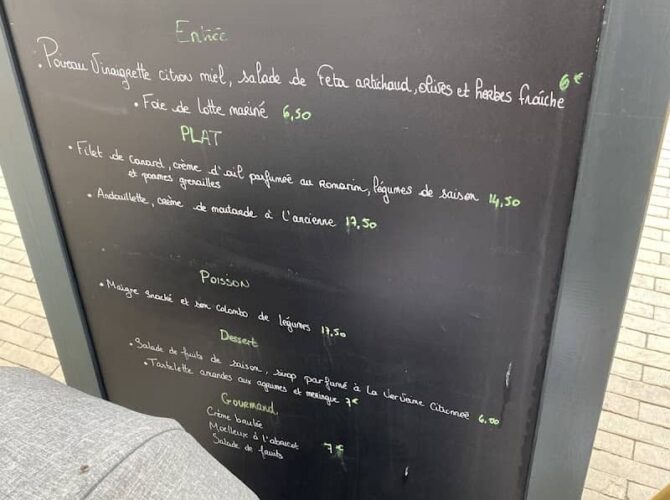 Entrée
• Poireau Vinaigrette citron miel, salade de Feta artichaud, olives et herbes fraîche 6€
• Foie de lotte mariné 6,50
PLAT
• Filet de canard, crème d'ail parfumée au Romarin, légumes de saison 14,50
et pommes grenailles
• Andouillette, crème de moutarde à l'ancienne 17,50
Poisson
• Maigre snacké et son colombo de légumes 17,50
Dessert
• Salade de fruits de saison, sirop parfumé à la Verveine Citronée 6.00
• Tartelette amandes aux agrumes et meringue 7€
Gourmand
Crème brulée
Moelleux à l'abricot 7€
Salade de fruits